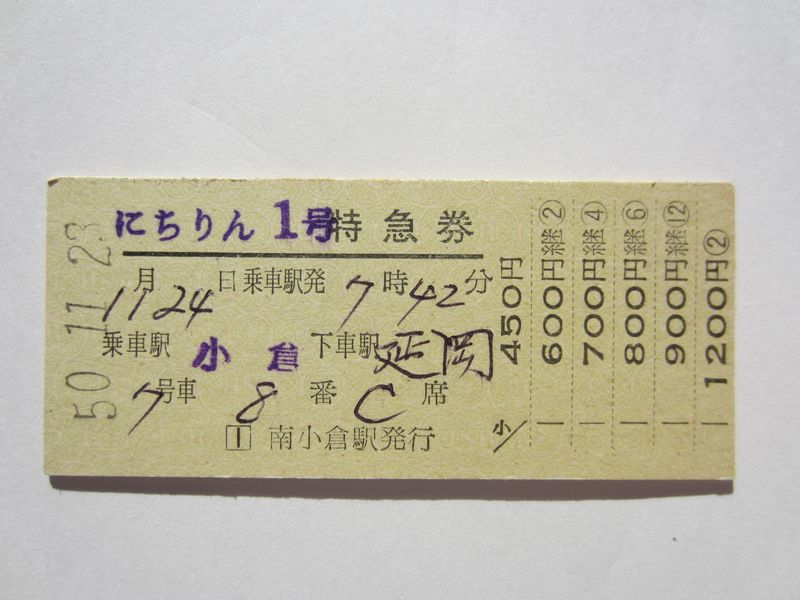 50.11.23
にちりん 1号 特急券
11月24日 乗車駅発 7時42分
乗車駅 小倉 下車駅 延岡
7号車 8番 C席
1 南小倉駅発行
小/
450円
600円継②
700円継④
800円継⑥
900円継⑫
1200円②